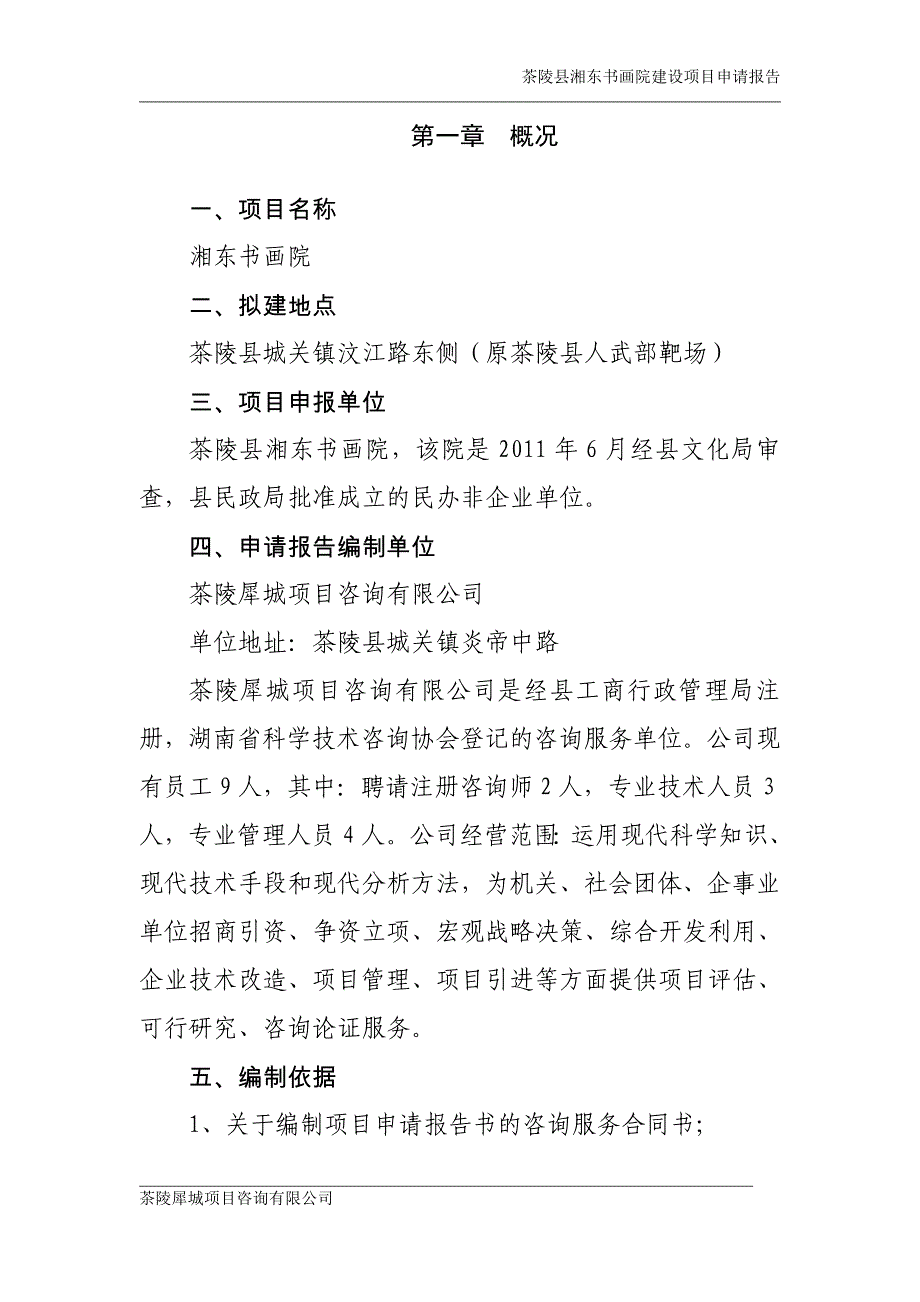 茶陵县湘东书画院建设项目申请报告
第一章 概况
一、项目名称
湘东书画院
二、拟建地点
茶陵县城关镇汶江路东侧（原茶陵县人武部靶场）
三、项目申报单位
茶陵县湘东书画院，该院是 2011 年 6 月经县文化局审
查，县民政局批准成立的民办非企业单位。
四、申请报告编制单位
茶陵犀城项目咨询有限公司
单位地址：茶陵县城关镇炎帝中路
茶陵犀城项目咨询有限公司是经县工商行政管理局注
册，湖南省科学技术咨询协会登记的咨询服务单位。公司现
有员工 9 人，其中：聘请注册咨询师 2 人，专业技术人员 3
人，专业管理人员 4 人。公司经营范围：运用现代科学知识、
现代技术手段和现代分析方法，为机关、社会团体、企事业
单位招商引资、争资立项、宏观战略决策、综合开发利用、
企业技术改造、项目管理、项目引进等方面提供项目评估、
可行研究、咨询论证服务。
五、编制依据
1、关于编制项目申请报告书的咨询服务合同书；
茶陵犀城项目咨询有限公司